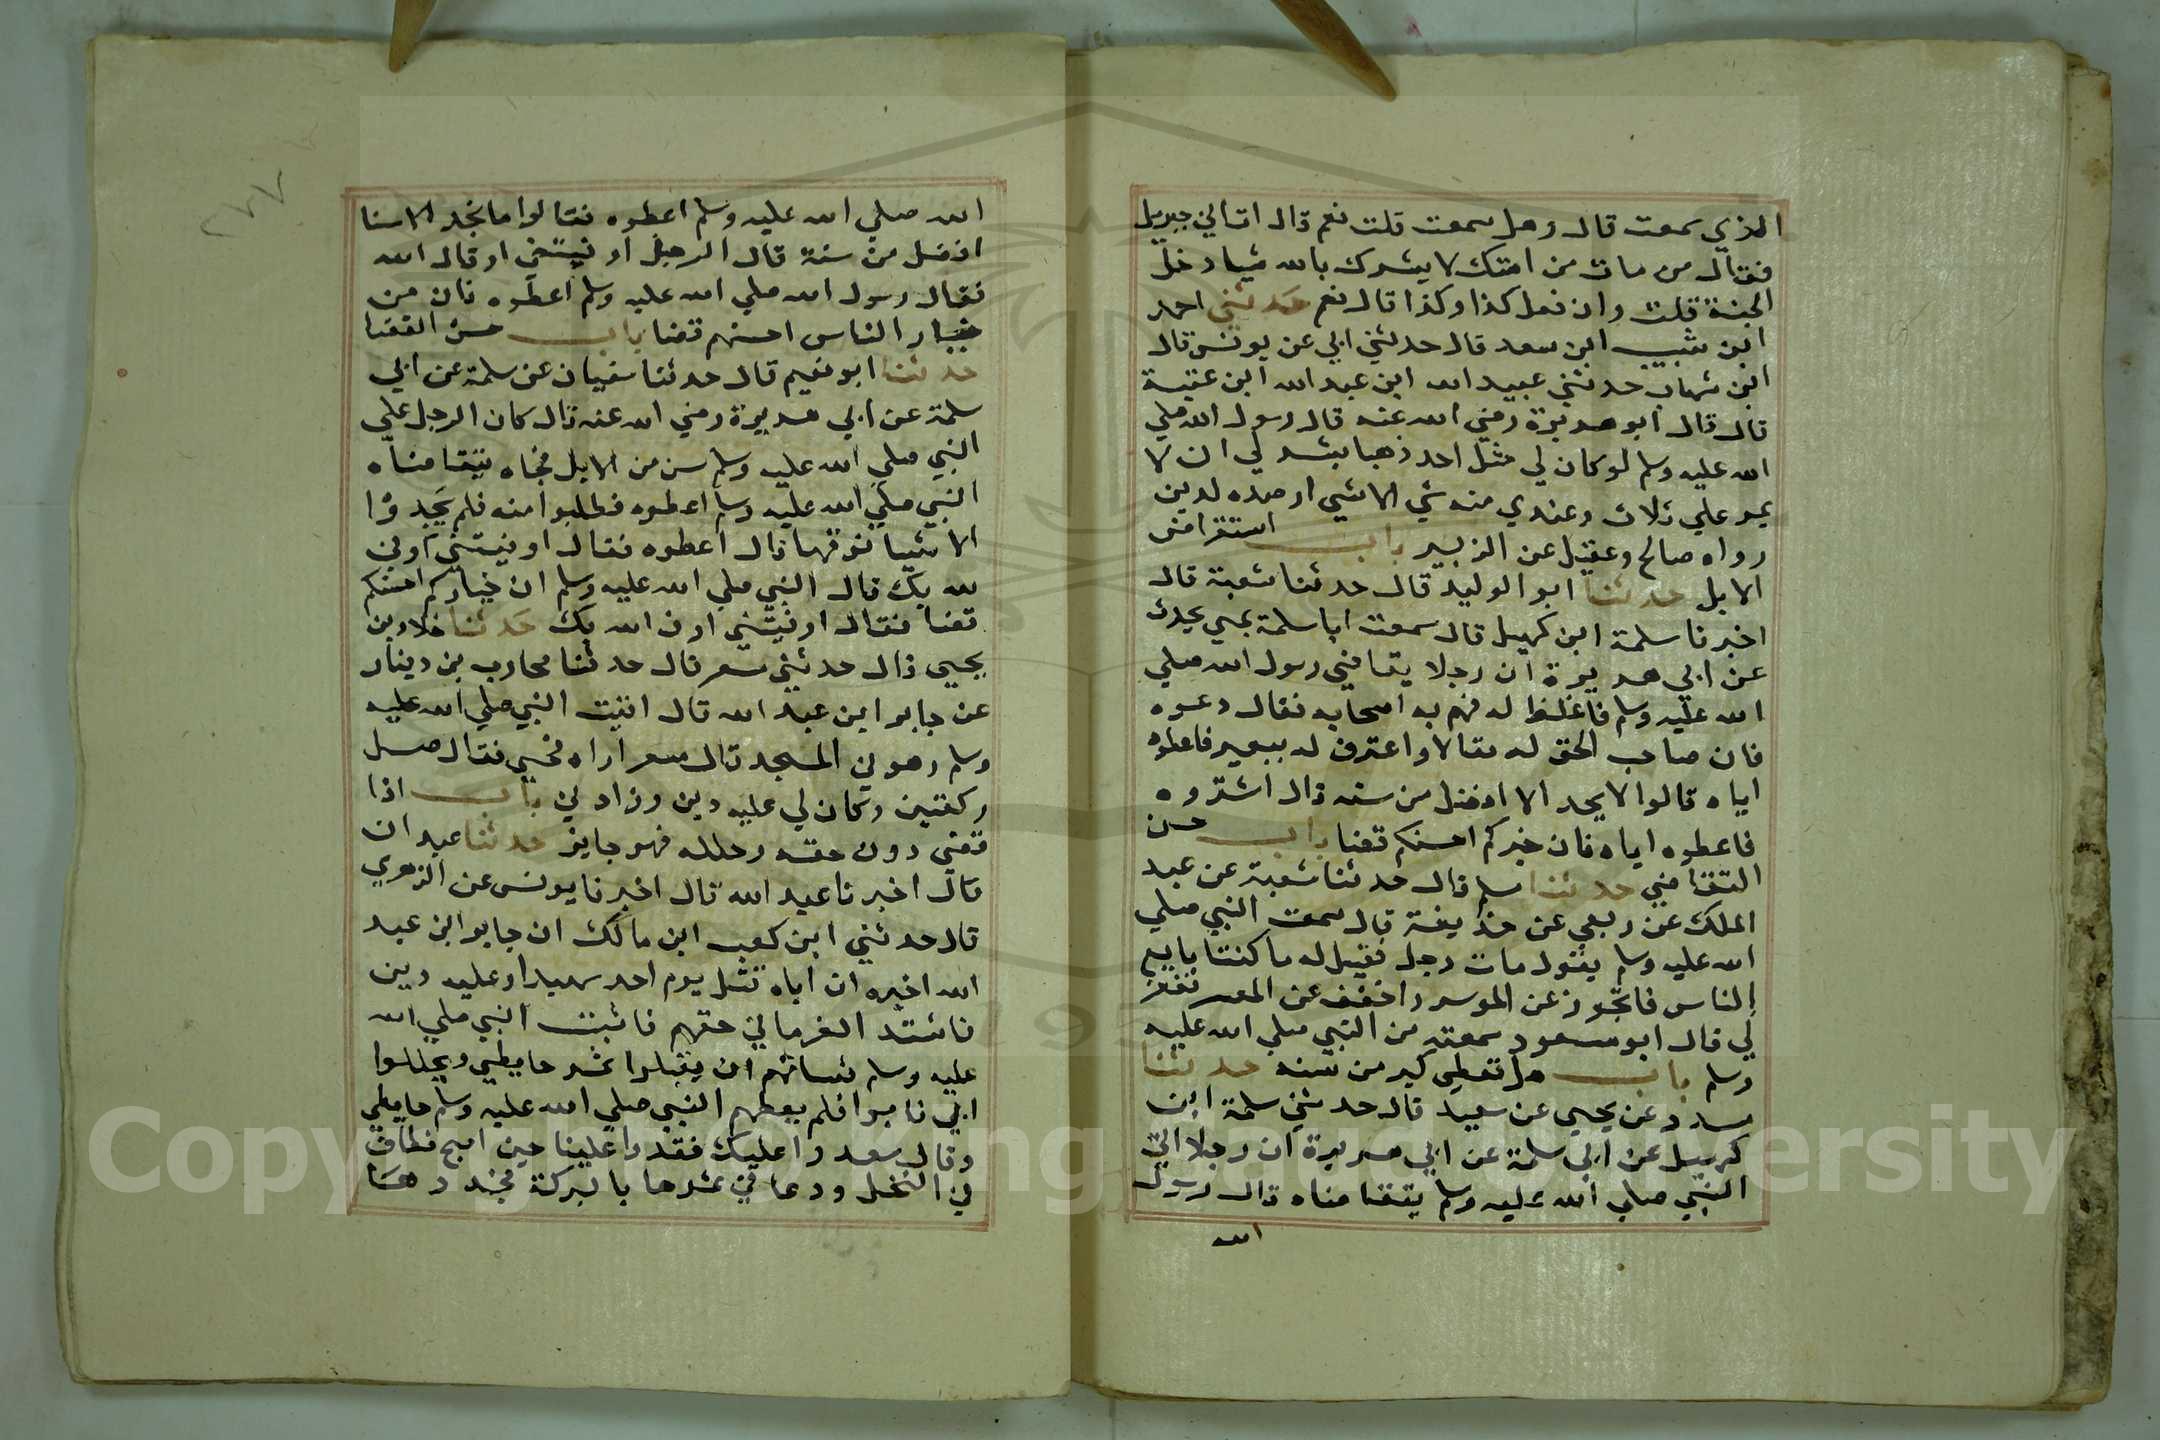 الذي سمعت قال وهل سمعت قلت نعم قال اتاني جبريل
فقال من مات من امتك لا يشرك بالله شيا دخل
الجنة قلت وان فعل كذا وكذا قال نعم حدثني احمد
ابن شبيب ابن سعد قال حدثني ابي عن يونس قال
ابن شهاب حدثني عبيد الله ابن عبد الله ابن عتبة
قال قال ابو هريرة رضي الله عنه قال رسول الله صلي
الله عليه وسلم لو كان لي مثل احد ذهبا يشرلي ان لا
يمر علي ثلاث وعندي منه شي الا شي ارصده لدين
رواه صالح وعقيل عن الزبير باب استقراض
الابل حدثنا ابو الوليد قال حدثنا شعبة قال
اخبرنا سلمة ابن كهيل قال سمعت ابا سلمة بمني يحدث
عن ابي هريرة ان رجلا يتقاضي رسول الله صلي
الله عليه وسلم فاغلظ له فهم به اصحابه فقال دعوه
فان صاحب الحق له مقالا واعترف له ببعير فاعطوه
اياه قالوا لا يجد الا افضل من سنه قال اشتروه
فاعطوه اياه فان خيركم احسنكم قضا باب حسن
التقاضي حدثنا مسلم قال حدثنا شعبة عن عبد
الملك عن ربعي عن حذيفة قال سمعت النبي صلي
الله عليه وسلم يقول مات رجل فقيل له ما كنت ابايع
الناس فاتجوز عن الموسر واخفف عن المعسر فغفر
لي قال ابو مسعود سمعته من النبي صلي الله عليه
وسلم باب هل تعطي كبر من سنه حدثنا
مسدد عن يحيي عن سعيد قال حدثني سلمة ابن
كهيل عن ابي سلمة عن ابي هريرة ان رجلا اتي
النبي صلي الله عليه وسلم يتقاضاه قال رسول
الله
٢٧٧
الله صلي الله عليه وسلم اعطوه فقالوا ما نجد الا سنا
افضل من سنة قال الرجل اوفيتني اوفاك الله
فقال رسول الله صلي الله عليه وسلم اعطوه فان من
خيار الناس احسنهم قضا باب حسن القضا
حدثنا ابو نعيم قال حدثنا سفيان عن سلمة عن ابي
سلمة عن ابي هريرة رضي الله عنه قال كان الرجل علي
النبي صلي الله عليه وسلم سن من الابل فجاه يتقاضاه
النبي صلي الله عليه وسلم اعطوه فطلبوا منه فلم يجدوا
الا شيا فوقها قال اعطوه فقال اوفيتني اوفي
لله بك قال النبي صلي الله عليه وسلم ان خياركم احسنكم
قضا فقال اوفيتني اوف الله بك حدثنا خلاد بن
يحيي قال حدثني مسعر قال حدثنا محارب بن دينار
عن جابر ابن عبد الله قال اتيت النبي صلي الله عليه
وسلم وهو في المسجد قال مسعر اراه ضحي فقال صل
ركعتين وكان لي عليه دين وزادني باب اذا
قضي دون حقه وحلله فهو جايز حدثنا عبدان
قال اخبرنا عبد الله قال اخبرنا يونس عن الزهري
قال حدثني ابن كعب ابن مالك ان جابر ابن عبد
الله اخبره ان اباه قتل يوم احد شهيدا وعليه دين
فاشتد الغرما في حقهم فاتيت النبي صلي الله
عليه وسلم فسالهم ان يقبلوا ثمر حايطي ويحللوا
ابي فابوا فلم يعطهم النبي صلي الله عليه وسلم حايطي
وقال سعدوا عليك فغدوا علينا حين اصبح فطاف
في النخل ودعا في ثمرها بالبركة فجددها
Copyright King Saud University